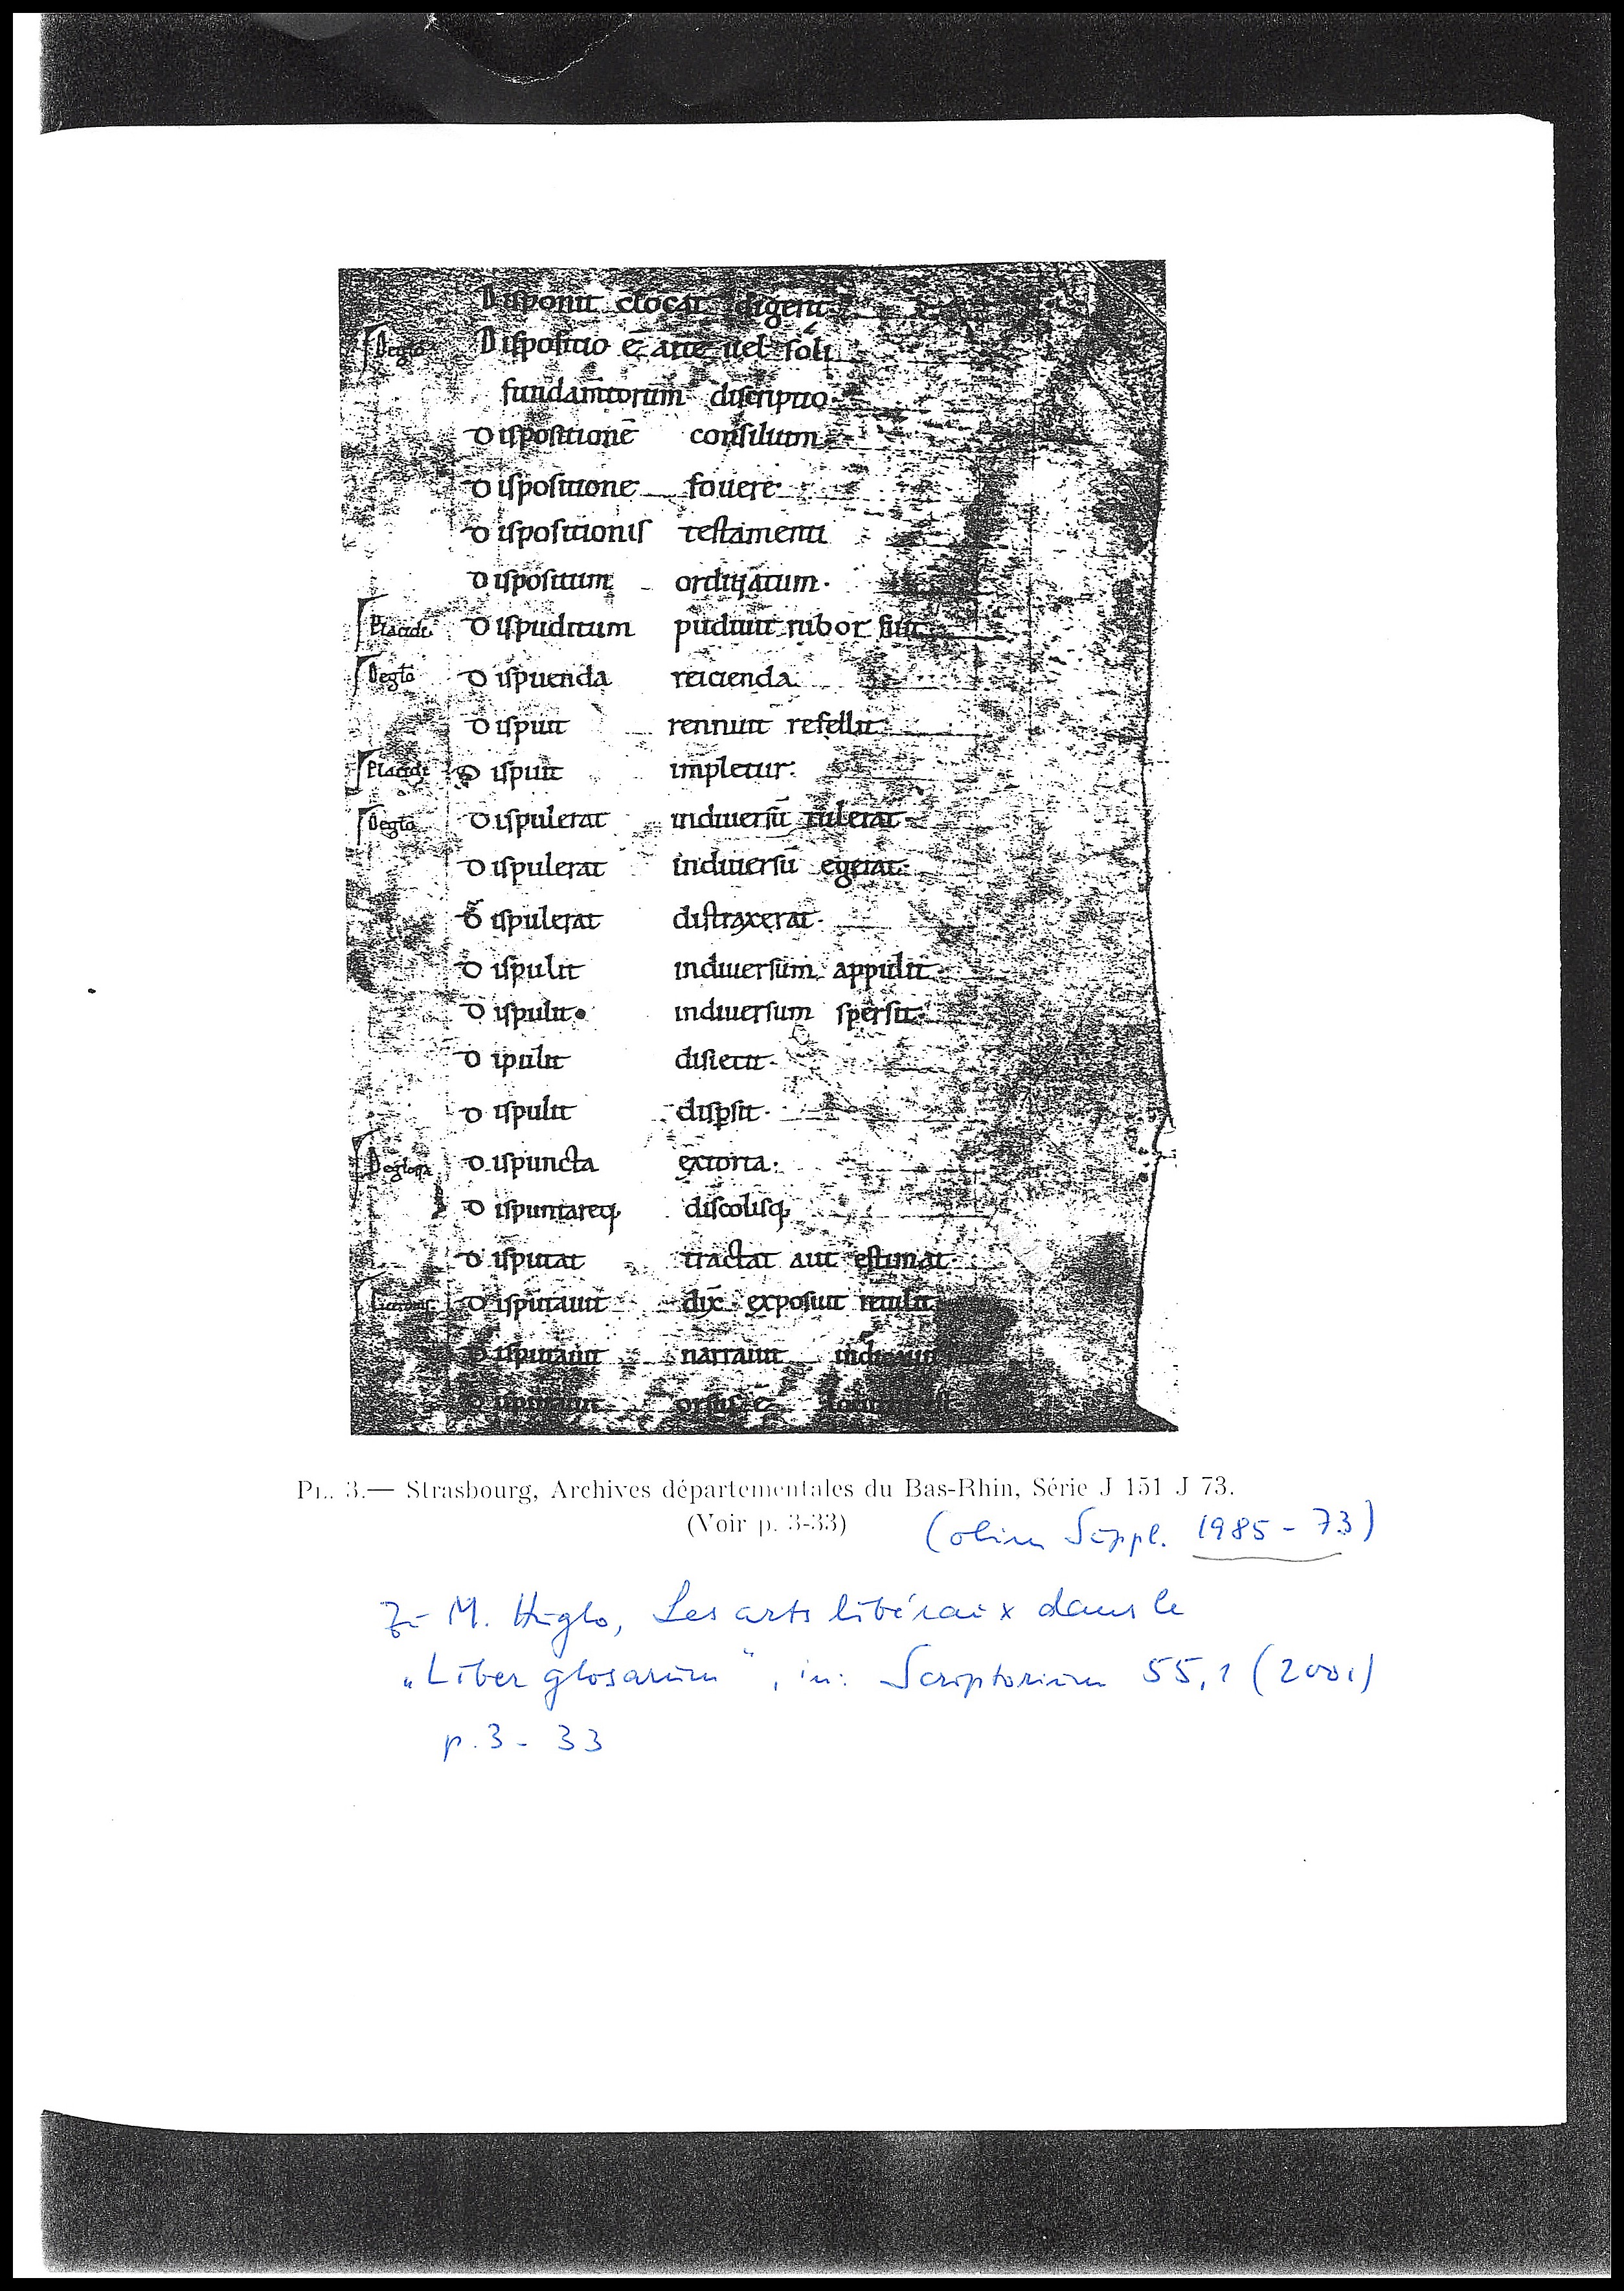 Disponit clocat digerit
De glo Dispositio ē aree uel soli
fundam̄torum discriptio
Dispositionē consilium
Dispositione fouere
Dispositionis testamenti
Dispositum ordinatum·
Placidi Dispuditum puduit rubor fuit
De glo Dispuenda reicienda
Dispuit rennuit refellit
Placidi Dispuit impletur
De glo Dispulerat indiuersū tulerat
Dispulerat indiuersū egerat
Dispulerat distraxerat
Dispulit indiuersum appulit
Dispulit indiuersum spersit
Dipulit disiecit
Dispulit dispsit
De glosa Dispuncta extorta
Dispuntareq; discolisq;
Disputat tractat aut estimat
Disputauit dix exposiuit retulit
Disputauit narrauit
Disputauit orsus ē
PL. 3.— Strasbourg, Archives départementales du Bas-Rhin, Série J 151 J 73.
(Voir p. 3-33)
(olim Suppl. 1985-73)
Zu M. Huglo, Les arts libéraux dans le
„Liber glosarum", in: Scriptorium 55,1 (2001)
p. 3-33